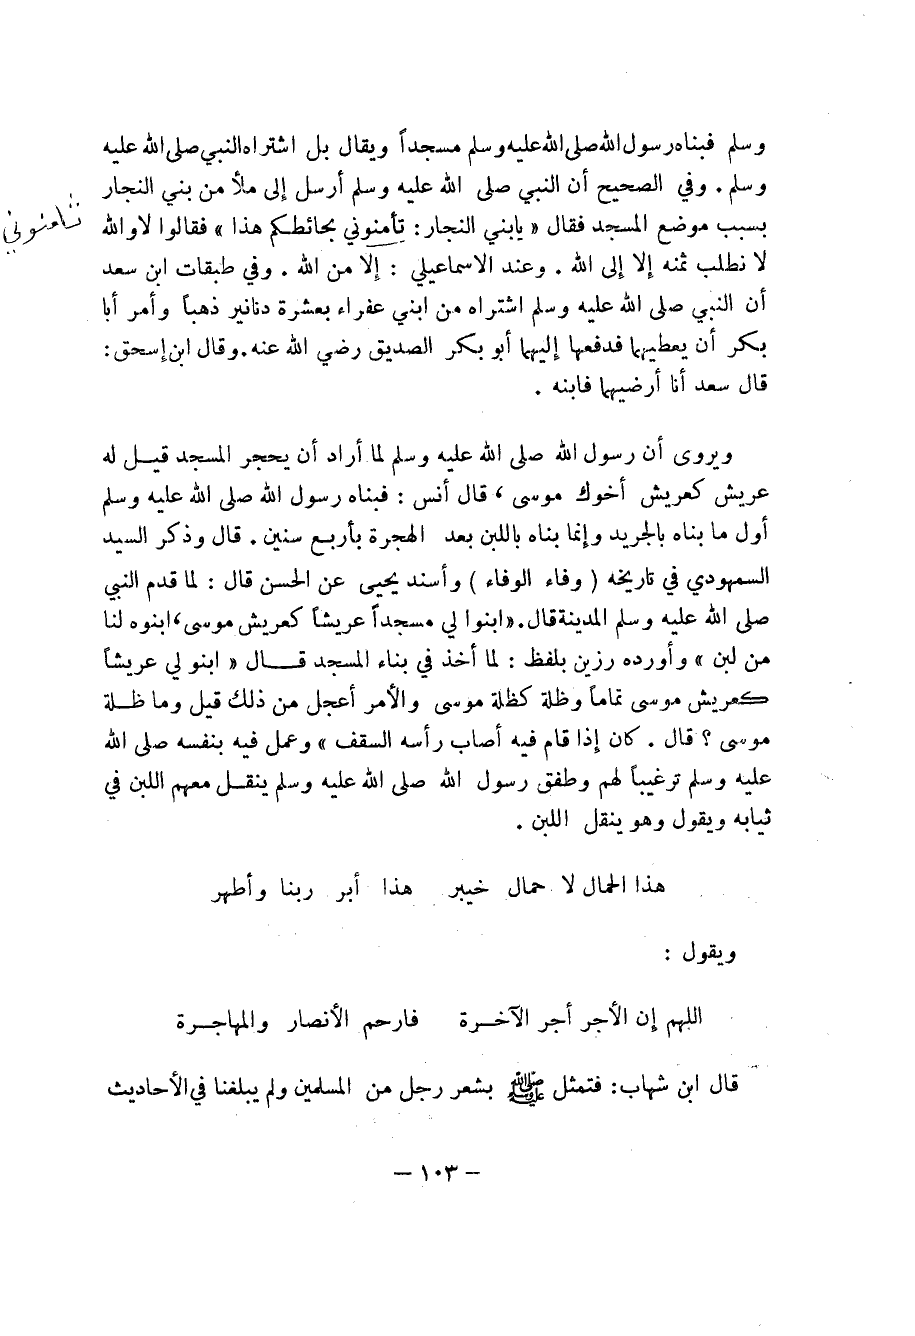 وسلم فبناه رسول الله صلى الله عليه وسلم مسجداً ويقال بل اشتراه النبي صلى الله عليه
وسلم . وفي الصحيح أن النبي صلى الله عليه وسلم أرسل إلى ملأ من بني النجار
بسبب موضع المسجد فقال « يابني النجار : تأمنوني بحائطكم هذا » فقالوا لا والله
ثامنوني
لا نطلب ثمنه إلا إلى الله . وعند الاسماعيلي : إلا من الله . وفي طبقات ابن سعد
أن النبي صلى الله عليه وسلم اشتراه من ابني عفراء بعشرة دنانير ذهباً وأمر أبا
بكر أن يعطيهما فدفعها إليهما أبو بكر الصديق رضي الله عنه . وقال ابن إسحق :
قال سعد أنا أرضيهما فابنه .
ويروى أن رسول الله صلى الله عليه وسلم لما أراد أن يحجر المسجد قيـل له
عريش كعريش أخوك موسى ، قال أنس : فبناه رسول الله صلى الله عليه وسلم
أول ما بناه بالجريد وإنما بناه باللبن بعد الهجرة بأربع سنين . قال وذكر السيد
السمهودي في تاريخه ( وفاء الوفاء ) وأسند يحيى عن الحسن قال : لما قدم النبي
صلى الله عليه وسلم المدينة قال . « ابنوا لي مسجداً عريشاً كعريش موسى ، ابنوه لنا
من لبن » وأورده رزين بلفظ : لما أخذ في بناء المسجد قـــال « ابنو لي عريشاً
كعريش موسى ثماماً وظلة كظلة موسى والأمر أعجل من ذلك قيل وما ظـلة
موسى ؟ قال . كان إذا قام فيه أصاب رأسه السقف » وعمل فيه بنفسه صلى الله
عليه وسلم ترغيباً لهم وطفق رسول الله صلى الله عليه وسلم ينقـل معهم اللبن في
ثيابه ويقول وهو ينقل اللبن .
هذا الحمال لا حمال خيبر هذا أبر ربنا وأطهر
ويقول :
اللهم إن الأجر أجر الآخـرة فارحم الأنصار والمهاجـرة
قال ابن شهاب : فتمثل ﷺ بشعر رجل من المسلمين ولم يبلغنا في الأحاديث
– ١٠٣ –